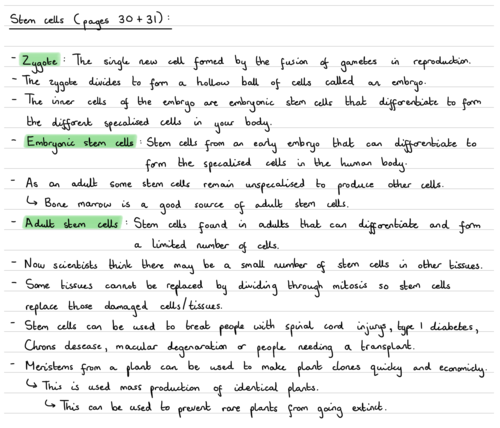 Stem cells (pages 30 + 31):
- Zygote: The single new cell formed by the fusion of gametes in reproduction.
- The zygote divides to form a hollow ball of cells called an embryo.
- The inner cells of the embryo are embryonic stem cells that differentiate to form
the different specalised cells in your body.
- Embryonic stem cells: Stem cells from an early embryo that can differentiate to
form the specalised cells in the human body.
- As an adult some stem cells remain unspecalised to produce other cells.
↳ Bone marrow is a good source of adult stem cells.
- Adult stem cells: Stem cells found in adults that can differentiate and form
a limited number of cells.
- Now scientists think there may be a small number of stem cells in other tissues.
- Some tissues cannot be replaced by dividing through mitosis so stem cells
replace those damaged cells/tissues.
- Stem cells can be used to treat people with spinal cord injury, type 1 diabetes,
Chrons desease, macular degenaration or people needing a transplant.
- Meristems from a plant can be used to make plant clones quicky and economicly.
↳ This is used mass production of identical plants.
↳ This can be used to prevent rare plants from going extinct.